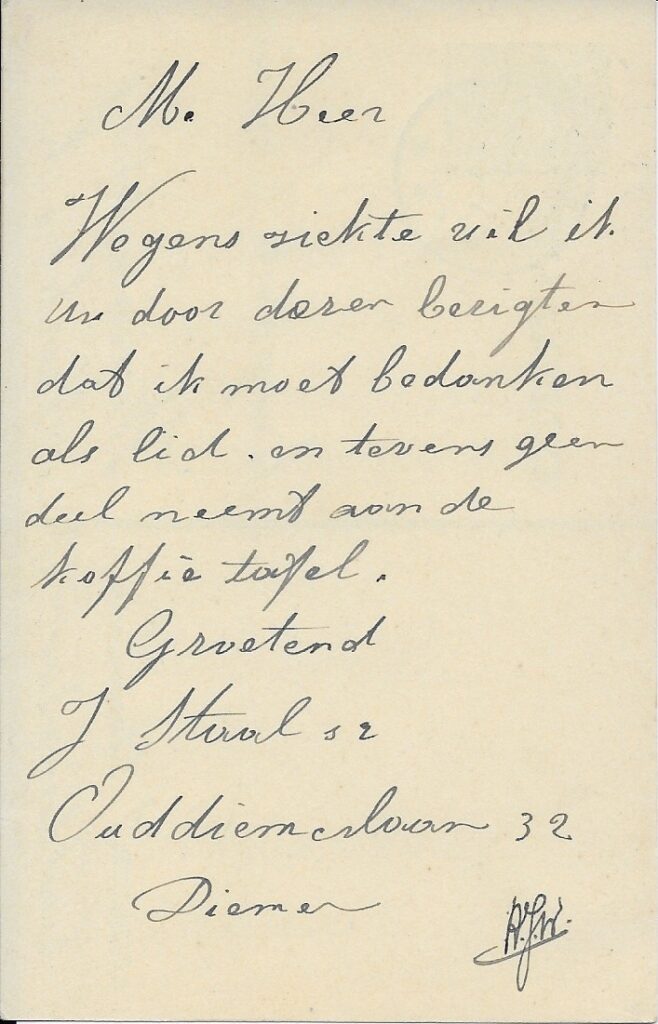 M. Heer
Wegens ziekte wil ik
u. door dezen berigten
dat ik moet bedanken
als lid. en tevens geen
deel neemt aan de
koffie tafel.
Groetend
J Staal sr
Ouddiemerlaan 32
Diemen